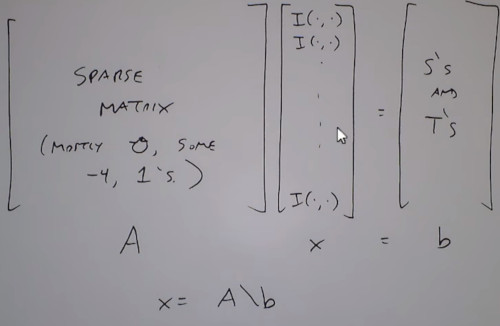 SPARSE
MATRIX
(MOSTLY 0, SOME
-4, 1's.)
I(·,·)
I(·,·)
·
·
·
·
I(·,·)
=
S's
AND
T's
A
x
=
b
x = A\b